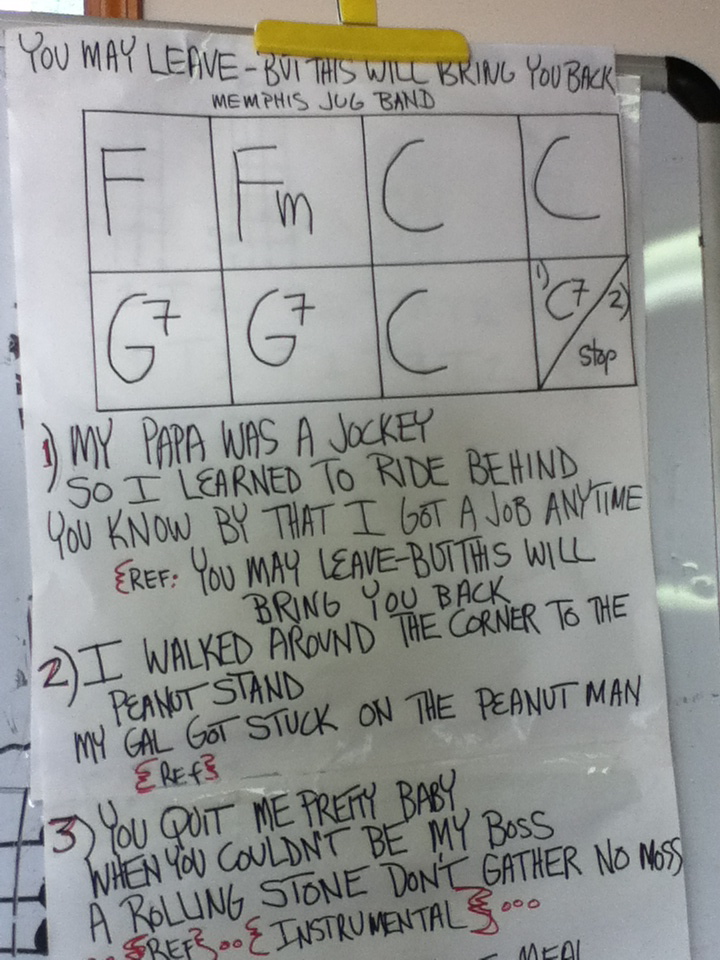 YOU MAY LEAVE - BUT THIS WILL BRING YOU BACK
MEMPHIS JUG BAND
F Fm C C
G7 G7 C 1) C7 / 2) Stop
1) MY PAPA WAS A JOCKEY
SO I LEARNED TO RIDE BEHIND
YOU KNOW BY THAT I GOT A JOB ANYTIME
{REF: YOU MAY LEAVE-BUT THIS WILL
BRING YOU BACK
2) I WALKED AROUND THE CORNER TO THE
PEANUT STAND
MY GAL GOT STUCK ON THE PEANUT MAN
{REf}
3) YOU QUIT ME PRETTY BABY
WHEN YOU COULDN'T BE MY BOSS
A ROLLING STONE DON'T GATHER NO MOSS
{REF}..{INSTRUMENTAL}...
MEAL